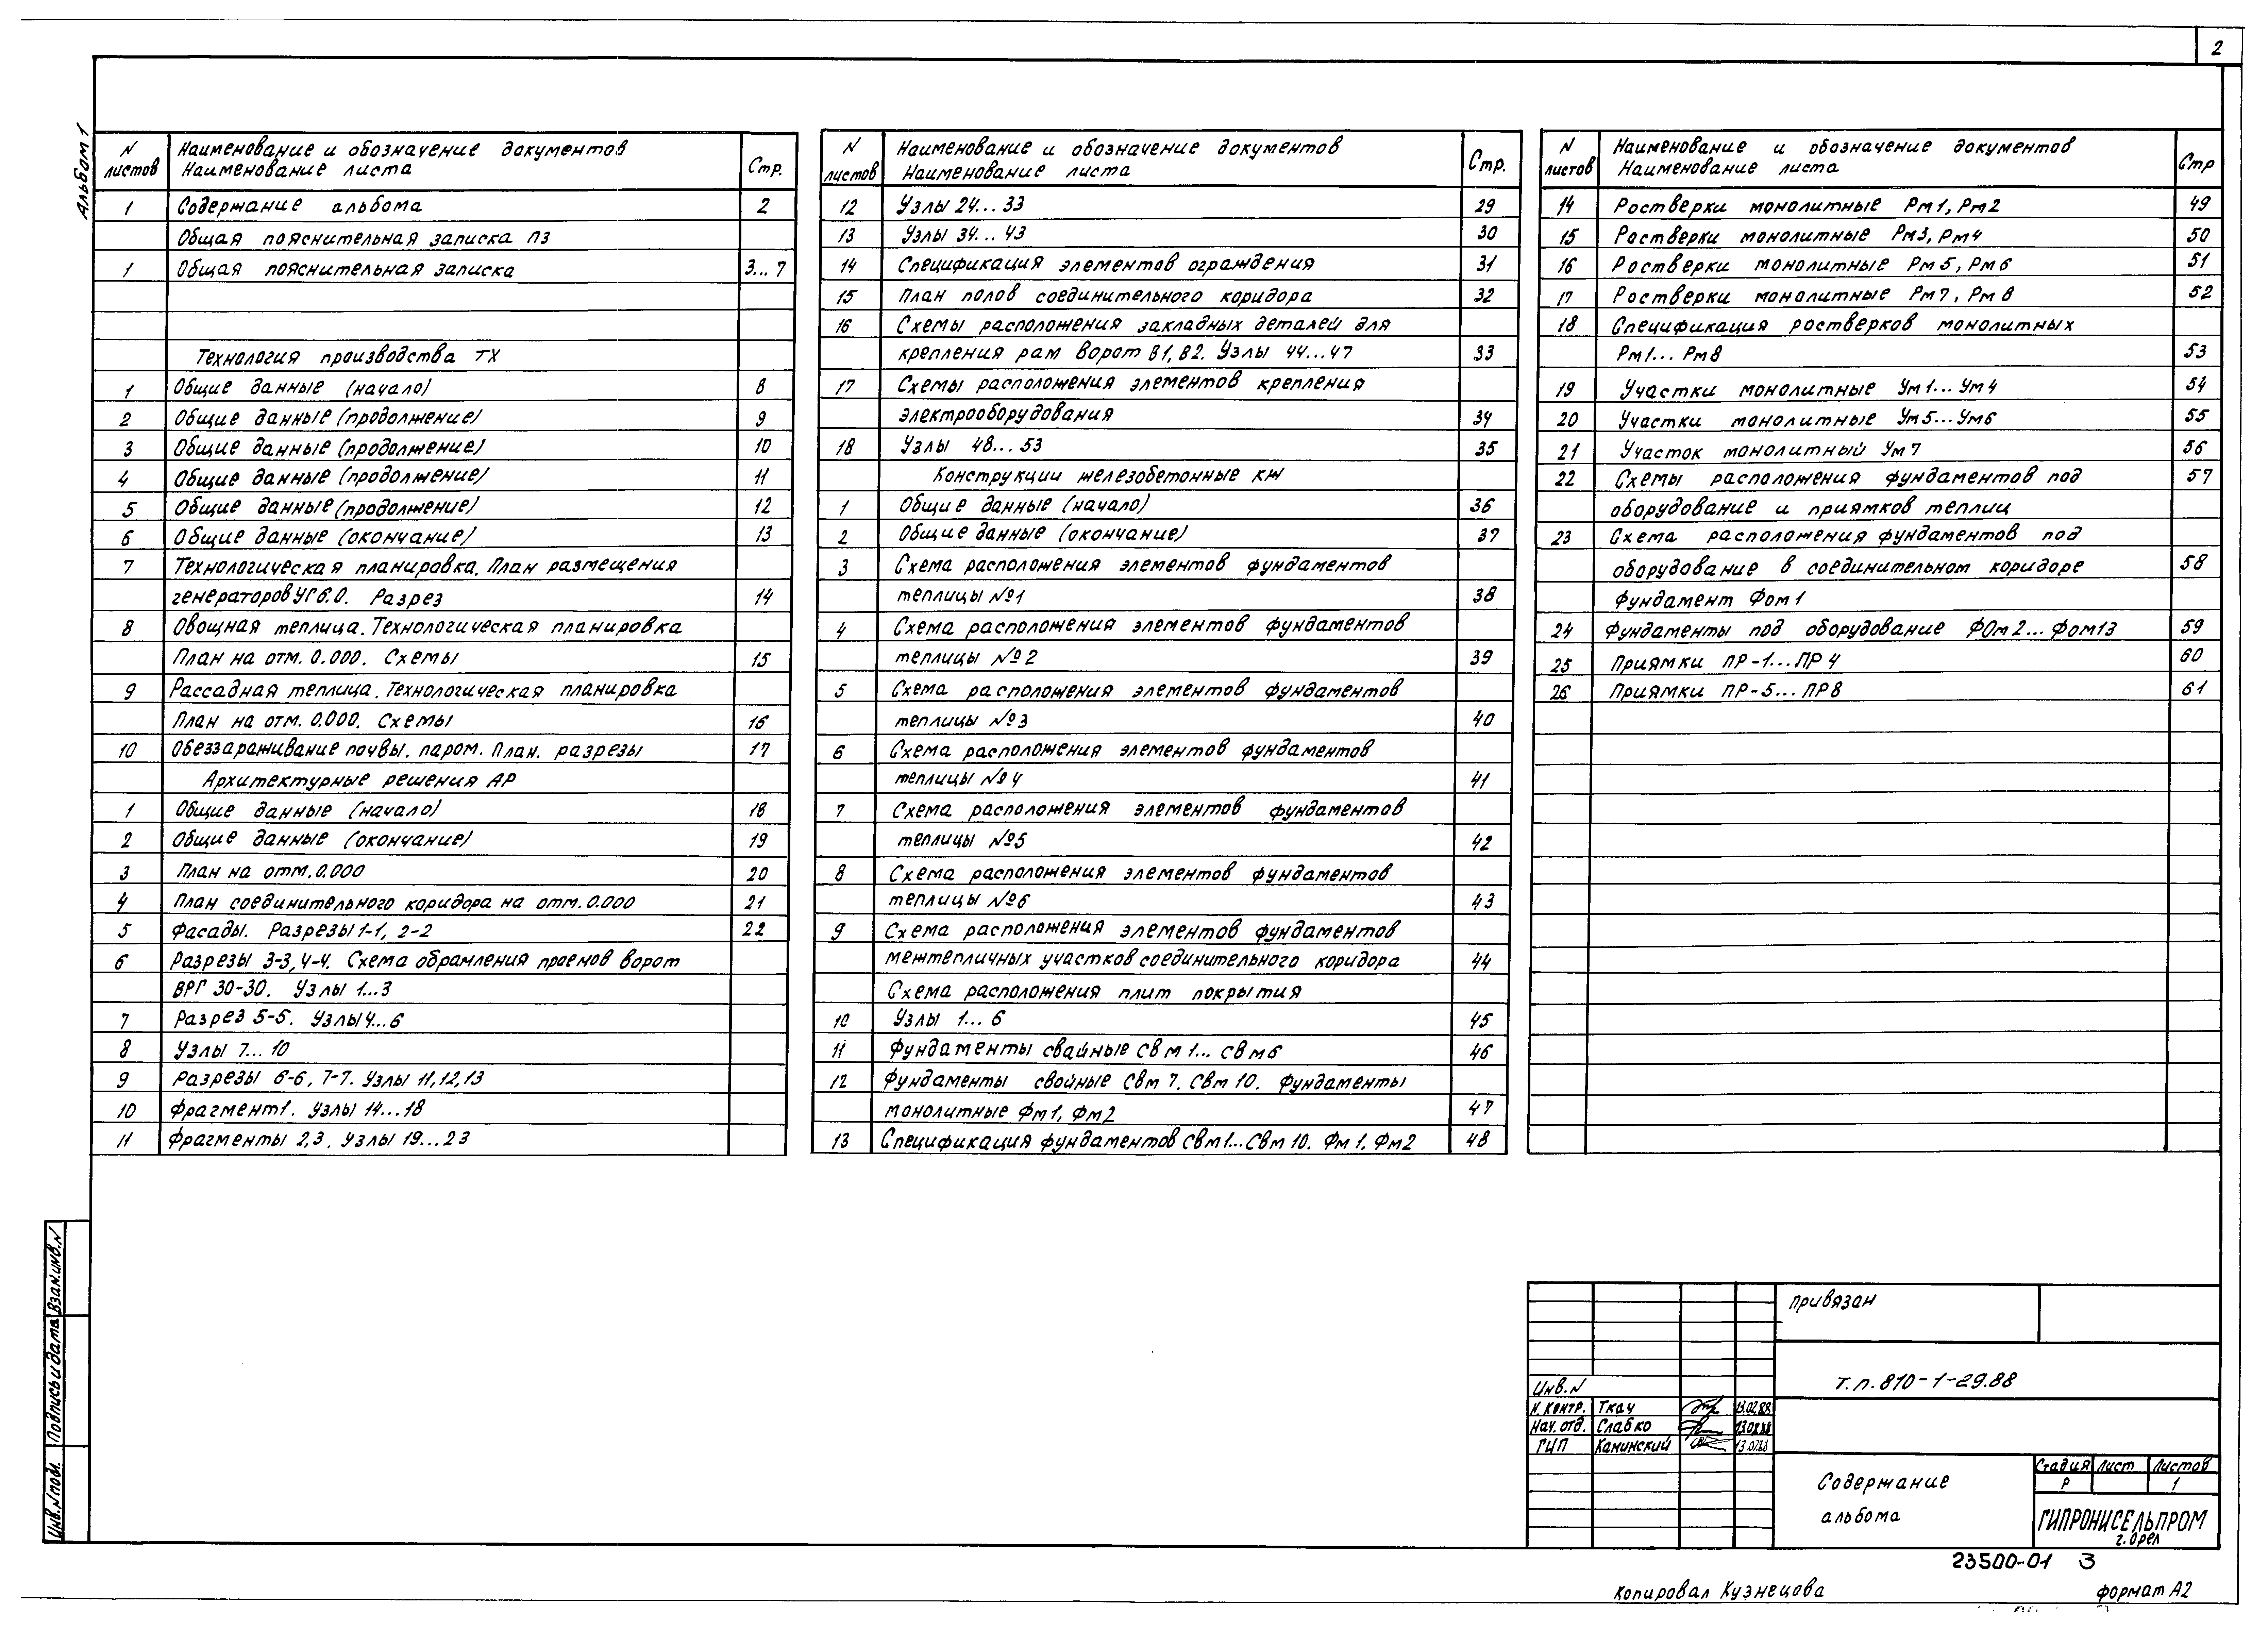 2
Альбом 1
N листов Наименование и обозначение документов Наименование листа Стр.
1 Содержание альбома 2
Общая пояснительная записка ПЗ
1 Общая пояснительная записка 3...7
Технология производства ТХ
1 Общие данные (начало) 8
2 Общие данные (продолжение) 9
3 Общие данные (продолжение) 10
4 Общие данные (продолжение) 11
5 Общие данные (продолжение) 12
6 Общие данные (окончание) 13
7 Технологическая планировка. План размещения
генераторов УГ6.0. Разрез 14
8 Овощная теплица. Технологическая планировка
План на отм. 0.000. Схемы 15
9 Рассадная теплица. Технологическая планировка
План на отм. 0.000. Схемы 16
10 Обеззараживание почвы. паром. План. разрезы 17
Архитектурные решения АР
1 Общие данные (начало) 18
2 Общие данные (окончание) 19
3 План на отм. 0.000 20
4 План соединительного коридора на отм. 0.000 21
5 Фасады. Разрезы 1-1, 2-2 22
6 Разрезы 3-3, 4-4. Схема обрамления проемов ворот
ВРГ 30-30. Узлы 1...3
7 Разрез 5-5. Узлы 4...6
8 Узлы 7...10
9 Разрезы 6-6, 7-7. Узлы 11,12,13
10 Фрагмент 1. Узлы 14...18
11 Фрагменты 2,3. Узлы 19...23
N листов Наименование и обозначение документов Наименование листа Стр.
12 Узлы 24...33 29
13 Узлы 34...43 30
14 Спецификация элементов ограждения 31
15 План полов соединительного коридора 32
16 Схемы расположения закладных деталей для
крепления рам ворот В1, В2. Узлы 44...47 33
17 Схемы расположения элементов крепления
электрооборудования 34
18 Узлы 48...53 35
Конструкции железобетонные КЖ
1 Общие данные (начало) 36
2 Общие данные (окончание) 37
3 Схема расположения элементов фундаментов
теплицы №1 38
4 Схема расположения элементов фундаментов
теплицы №2 39
5 Схема расположения элементов фундаментов
теплицы №3 40
6 Схема расположения элементов фундаментов
теплицы №4 41
7 Схема расположения элементов фундаментов
теплицы №5 42
8 Схема расположения элементов фундаментов
теплицы №6 43
9 Схема расположения элементов фундаментов
межтепличных участков соединительного коридора 44
Схема расположения плит покрытия
10 Узлы 1...6 45
11 Фундаменты свайные Свм1...Свм6 46
12 Фундаменты свойные Свм 7. Свм 10. Фундаменты
монолитные Фм1, Фм2 47
13 Спецификация фундаментов Свм1...Свм 10. Фм 1, Фм2 48
N листов Наименование и обозначение документов Наименование листа Стр
14 Ростверки монолитные Рм1, Рм2 49
15 Ростверки монолитные Рм3, Рм4 50
16 Ростверки монолитные Рм5, Рм6 51
17 Ростверки монолитные Рм7, Рм8 52
18 Спецификация ростверков монолитных
Рм1...Рм8 53
19 Участки монолитные Ум1...Ум4 54
20 Участки монолитные Ум5...Ум6 55
21 Участок монолитный Ум7 56
22 Схемы расположения фундаментов под 57
оборудование и приямков теплиц
23 Схема расположения фундаментов под
оборудование в соединительном коридоре 58
Фундамент Фом1
24 Фундаменты под оборудование ФОм2...Фом13 59
25 Приямки ПР-1...ПР4 60
26 Приямки ПР-5...ПР8 61
Взам.инв.N
Подпись и дата
Инв.N подл.
Привязан
Инв.N
Т.п. 810-1-29.88
Н. контр. Ткач 13.02.88
Нач. отд. Слабко
ГИП Каминский
Содержание
альбома
Стадия Лист Листов
Р 1
ГИПРОНИСЕЛЬПРОМ
г. Орел
23500-01 3
Копировал Кузнецова
Формат А2